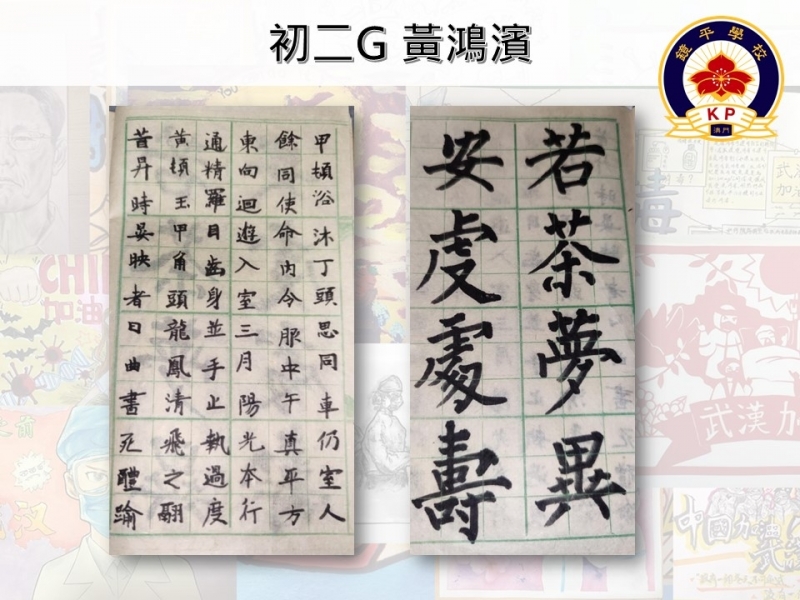 初二G 黃鴻濱
鏡平學校
KP
澳門
甲頓浴沐丁頭思同車仍室人
餘同使命內令服中午真平方
東向迴遊入室三月陽光本行
通精羅目齒身並手止執過度
黃頓玉甲角頭龍鳳清飛之翮
昔昇時晏映者日曲書死體踰
若茶夢異
安虔處壽
CHI
加油
武漢加
中國加油